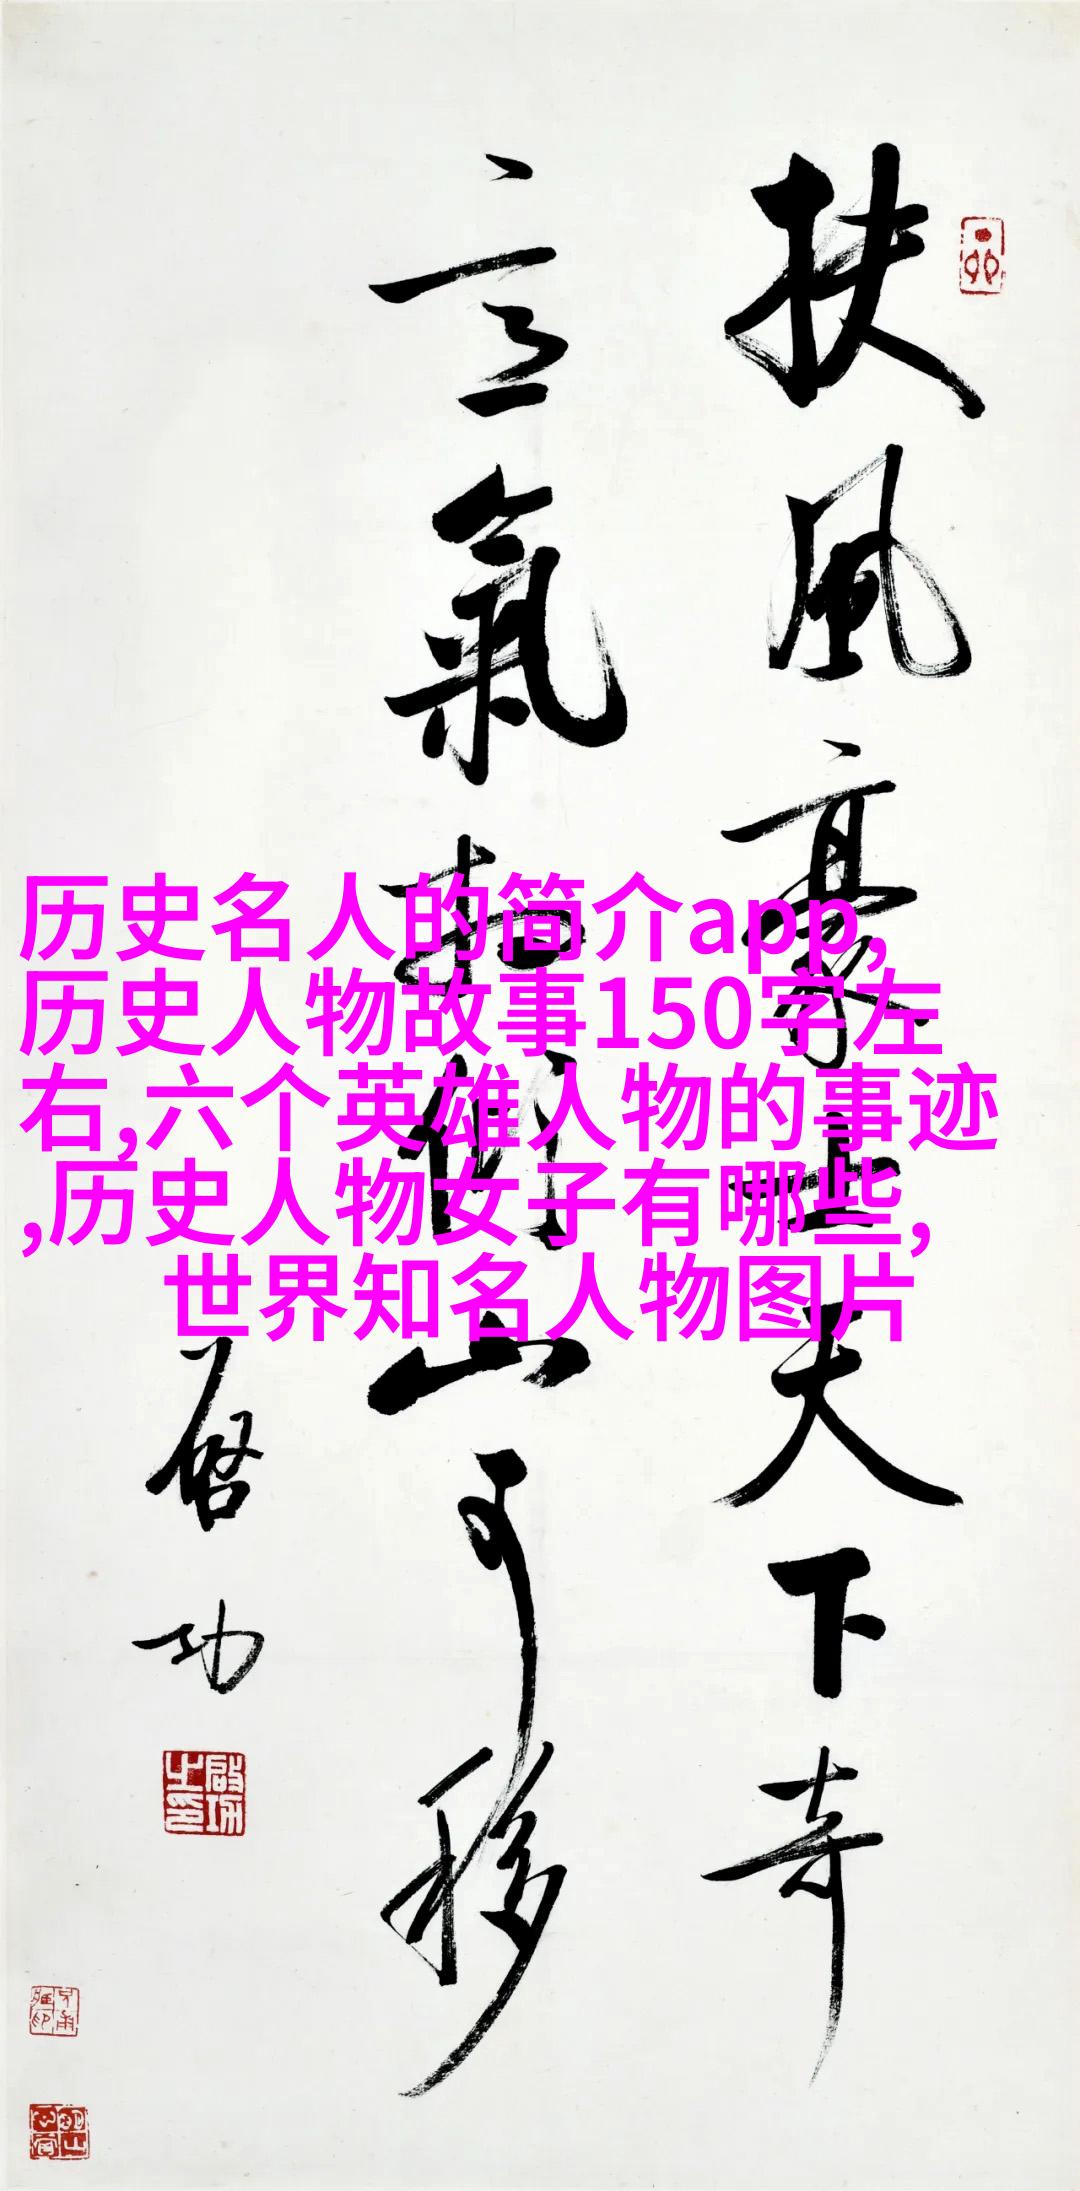 扶風豪士天下奇
意氣相傾山可移
啟功
啟功之印
历史名人的简介app,
历史人物故事150字左
右,六个英雄人物的事迹
,历史人物女子有哪些,
世界知名人物图片